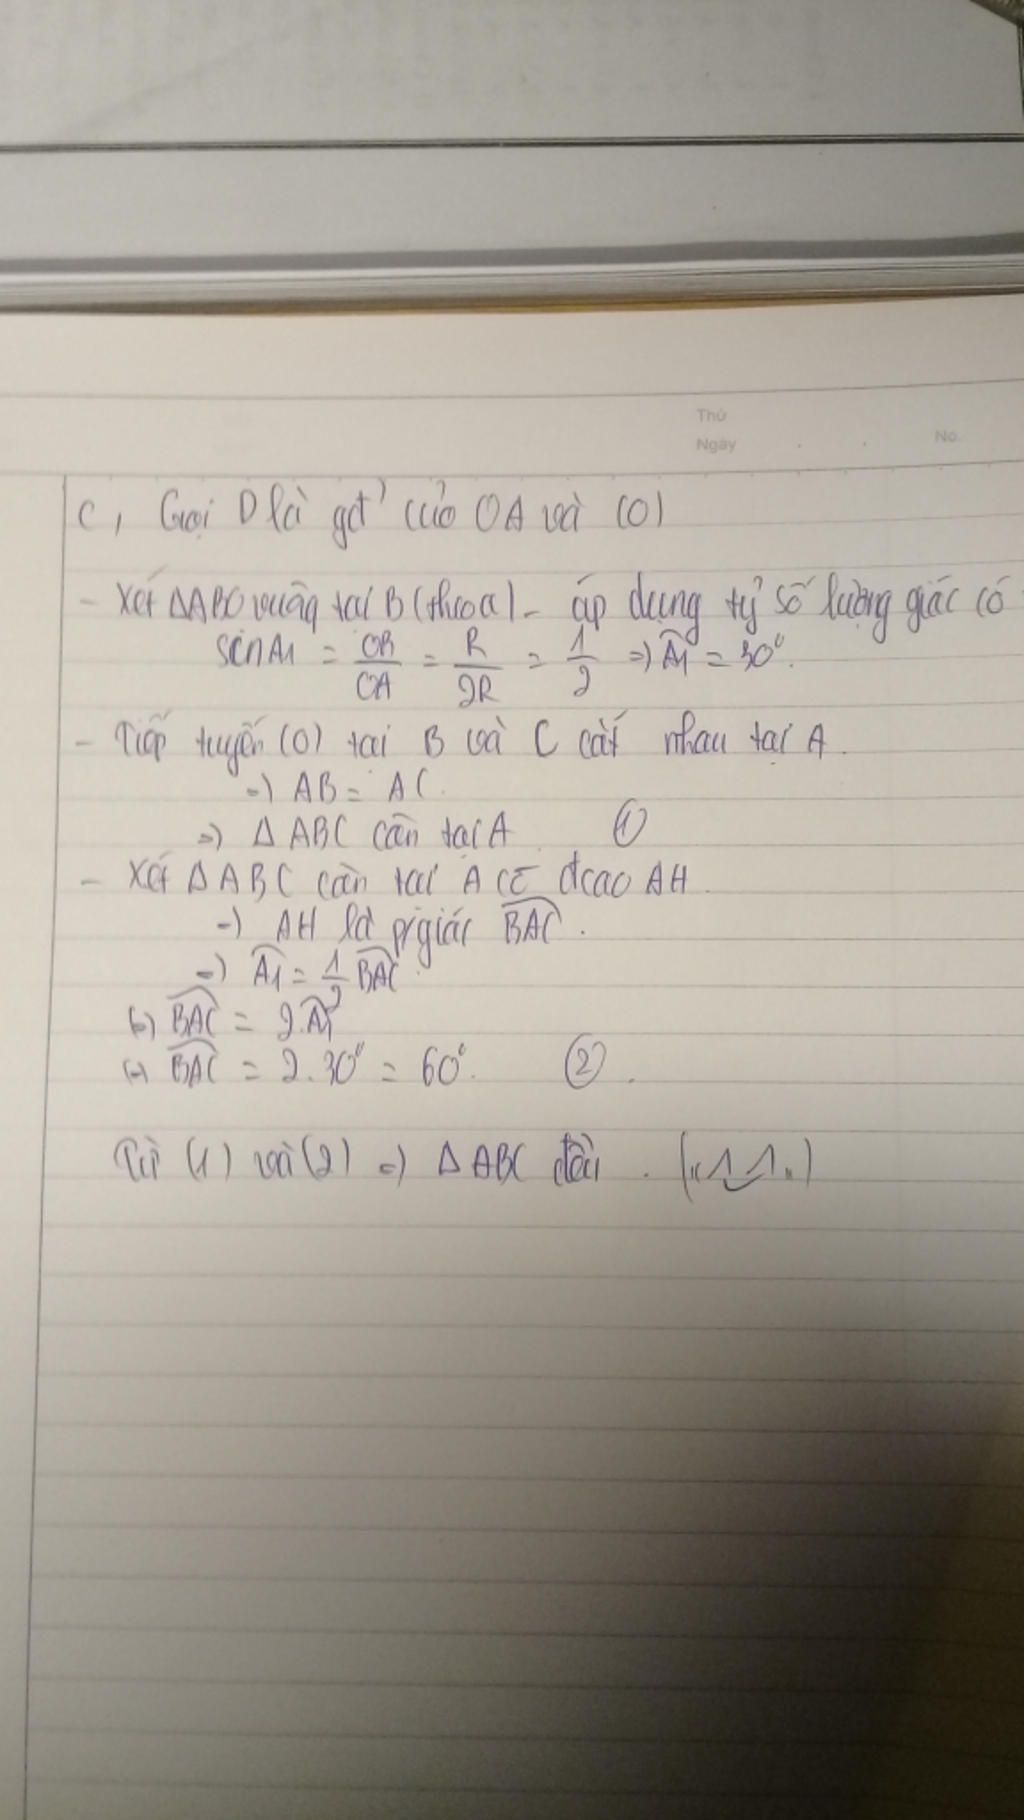 Thứ
Ngày
No.
C, Gọi D là gđ' của OA và (O)
- Xét ΔABO vuông tại B (theo a) - áp dụng tỷ số lượng giác có
sin A1 = OB/OA = R/2R = 1/2 => Â1 = 30°.
- Tiếp tuyến (O) tại B và C cắt nhau tại A.
=> AB = AC.
=> Δ ABC cân tại A ①
- Xét ΔABC cân tại A có đcao AH.
=> AH là p/giác BAC.
=> A1 = 1/2 BAC
(=) BAC = 2.A1
(=) BAC = 2.30° = 60°. ②.
Từ (1) và (2) => Δ ABC đều.